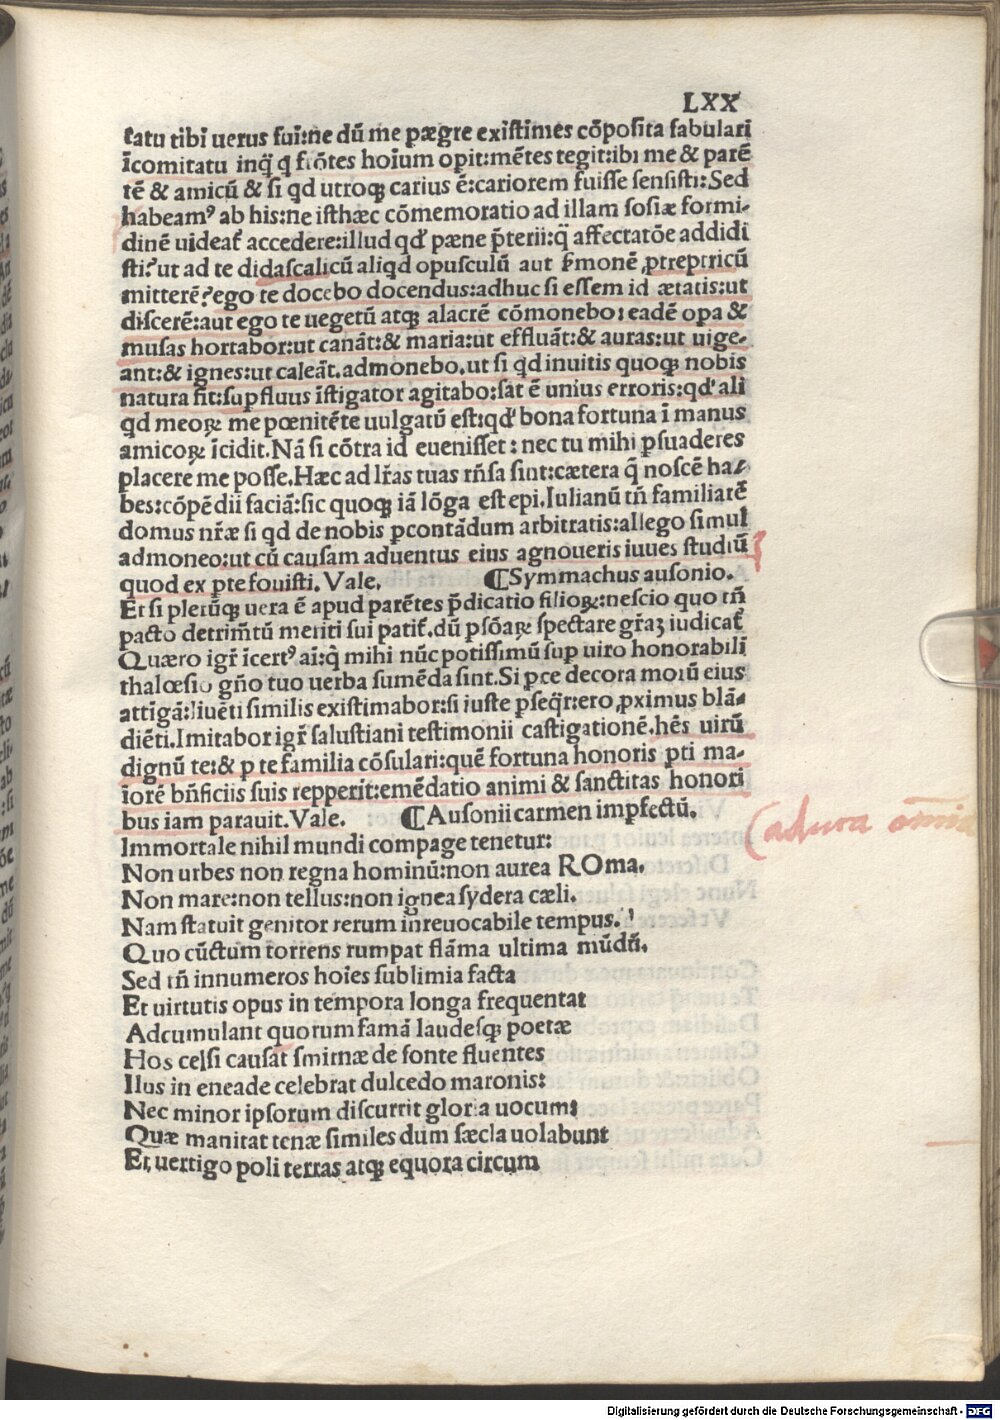 LXX
tatu tibi uerus fui:ne dū me pægre existimes cōposita fabulari
īcomitatu inq̄ q frōtes hoīum opit:mētes tegit:ibi me & parē
tē & amicū & si qd utroqꝫ carius ē:cariorem fuisse sensisti:Sed
habeamꝰ ab his:ne isthæc cōmemoratio ad illam sosiæ formi-
dinē uideat̉ accedere:illud qd' pæne p̄terii:q̄ affectatōe addidi
sti?ut ad te didascalicū aliqd opusculū aut ẜmonē ꝓtreptricū
mitterē?ego te docebo docendus:adhuc si essem id ætatis:ut
discerē:aut ego te uegetū atqꝫ alacrē cōmonebo:eadē opa &
musas hortabor:ut canāt:& maria:ut effluāt:& auras:ut uige-
ant:& ignes:ut caleāt.admonebo.ut si qd inuitis quoqꝫ nobis
natura fit:supfluus īstigator agitabo:sat ē unius erroris:qd' ali
qd meoꝝ me pœnitēte uulgatū est:qd' bona fortuna ī manus
amicoꝝ īcidit.Nā si cōtra id euenisset:nec tu mihi ꝑsuaderes
placere me posse.Hæc ad lr̄as tuas rn̄sa sint:cætera q̄ noscē ha-
bes:cōpēdii faciā:sic quoqꝫ iā lōga est epi.Iulianū tn̄ familiarē
domus nr̄æ si qd de nobis ꝑcontādum arbitratis:allego simul
admoneo:ut cū causam aduentus eius agnoueris iuues studiū
quod ex ꝑte fouisti.Vale. ¶Symmachus ausonio.
Et si plerūqꝫ uera ē apud parētes p̄dicatio filioꝝ:nescio quo tn̄
pacto detrim̄tū meriti sui patit̉.dū ꝑsōaꝝ spectare gr̄aꝫ iudicat̉
Quæro igr̄ īcertꝰ aī:q̄ mihi nūc potissimū sup uiro honorabili
thalœsio gn̄o tuo uerba sumēda sint.Si ꝑce decora moꝛū eius
attīgā:liuēti similis existimabor:si iuste ꝑseqr̄:ero ꝓximus blā-
diēti.Imitabor igr̄ salustiani testimonii castigationē.hēs uirū
dignū te:& ꝑ te familia cōsulari:quē fortuna honoris ꝑti ma-
iorē bn̄ficiis suis repperit:emēdatio animi & sanctitas honori
bus iam parauit.Vale. ¶Ausonii carmen impfectū.
Immortale nihil mundi compage tenetur:
Non urbes non regna hominū:non aurea ROma.
Non mare:non tellus:non ignea sydera cæli.
Nam statuit genitor rerum inreuocabile tempus.
Quo cūctum torrens rumpat flāma ultima mūdū.
Sed tn̄ innumeros hoīes sublimia facta
Et uirtutis opus in tempora longa frequentat
Adcumulant quorum famā laudesqꝫ poetæ
Hos celsi causat smirnæ de fonte fluentes
Ilus in eneade celebrat dulcedo maronis:
Nec minor ipsorum discurrit gloria uocum:
Quæ manitat tenæ similes dum sæcla uolabunt
Et uertigo poli terras atqꝫ equora circum
adura om̄ia
Digitalisierung gefördert durch die Deutsche Forschungsgemeinschaft - DFG